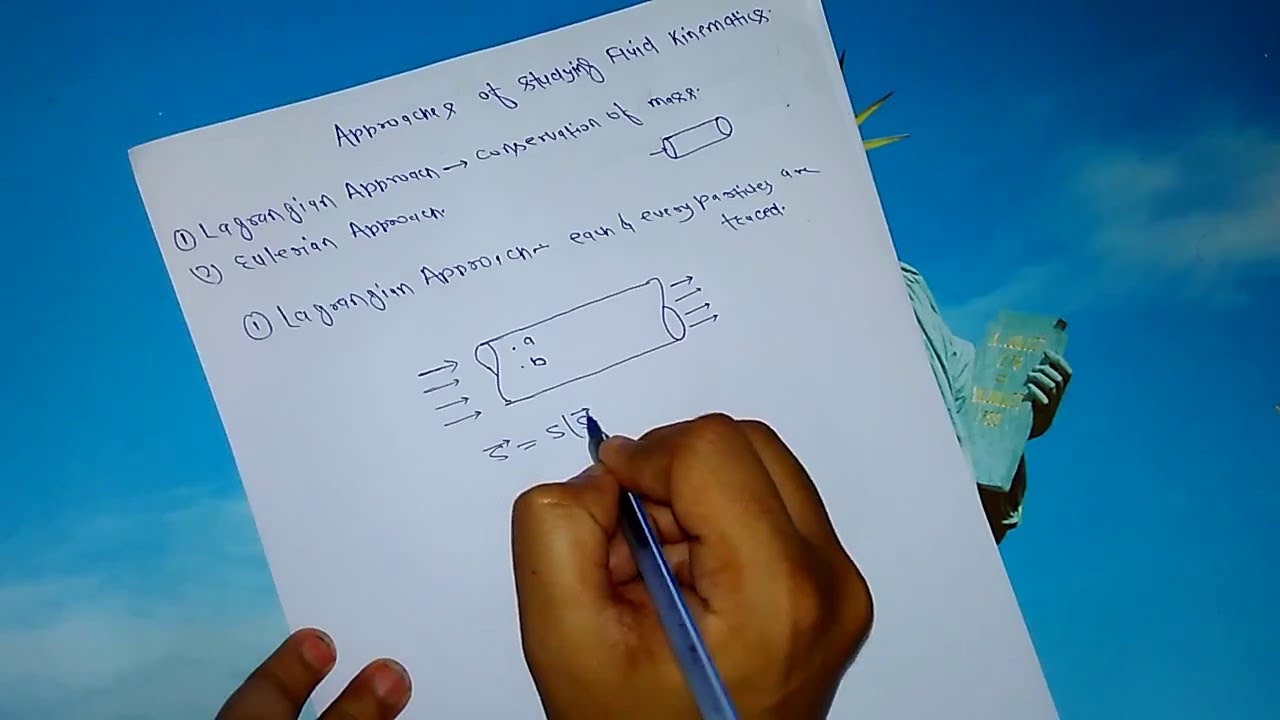 Approaches of studying Fluid Kinematics.
① Lagrangian Approach → conservation of mass.
② Eulerian Approach.
① Lagrangian Approach - each & every particles are
traced.
a
b
S⃗ = S(S⃗